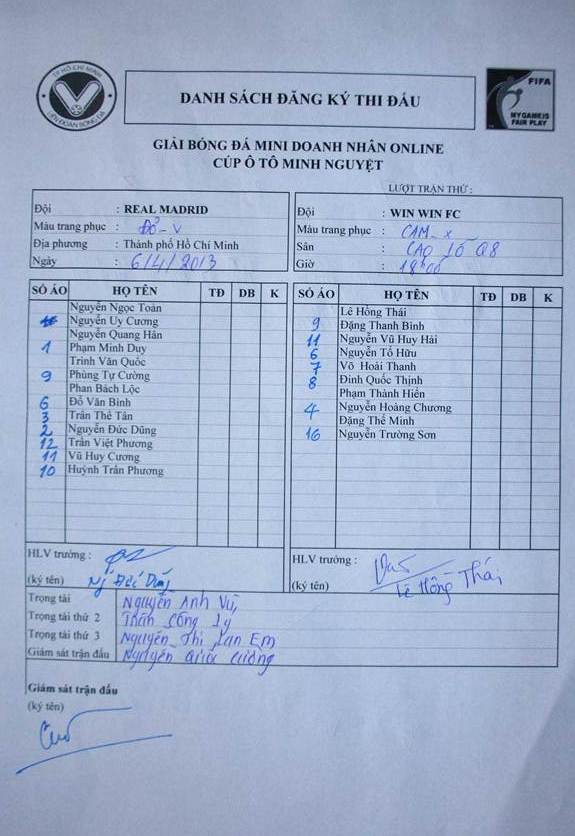 TP HỒ CHÍ MINH
LIÊN ĐOÀN BÓNG ĐÁ
DANH SÁCH ĐĂNG KÝ THI ĐẤU
FIFA
MY GAME IS
FAIR PLAY
GIẢI BÓNG ĐÁ MINI DOANH NHÂN ONLINE
CÚP Ô TÔ MINH NGUYỆT
LƯỢT TRẬN THỨ :
Đội : REAL MADRID
Màu trang phục : Đỏ - V
Địa phương : Thành phố Hồ Chí Minh
Ngày : 6/4/2013
Đội : WIN WIN FC
Màu trang phục : CAM - X
Sân : CAO LỖ Q8
Giờ : 18h00
SỐ ÁO HỌ TÊN TĐ DB K
Nguyễn Ngọc Toàn
Nguyễn Uy Cương
Nguyễn Quang Hân
1 Phạm Minh Duy
Trịnh Văn Quốc
9 Phùng Tự Cường
Phan Bách Lộc
6 Đỗ Văn Bình
3 Trần Thế Tân
2 Nguyễn Đức Dũng
12 Trần Việt Phương
11 Vũ Huy Cương
10 Huỳnh Trấn Phương
SỐ ÁO HỌ TÊN TĐ DB K
Lê Hồng Thái
9 Đặng Thanh Bình
11 Nguyễn Vũ Huy Hải
6 Nguyễn Tố Hữu
7 Võ Hoài Thanh
8 Đinh Quốc Thịnh
Phạm Thành Hiển
4 Nguyễn Hoàng Chương
Đặng Thế Minh
16 Nguyễn Trường Sơn
HLV trưởng :
(ký tên) Ng Đức Dũng
HLV trưởng :
(ký tên) Lê Hồng Thái
Trọng tài Nguyễn Anh Vũ
Trọng tài thứ 2 Trần Công Lý
Trọng tài thứ 3 Nguyễn Thị Lan Em
Giám sát trận đấu Nguyễn Quốc Cường
Giám sát trận đấu
(ký tên)